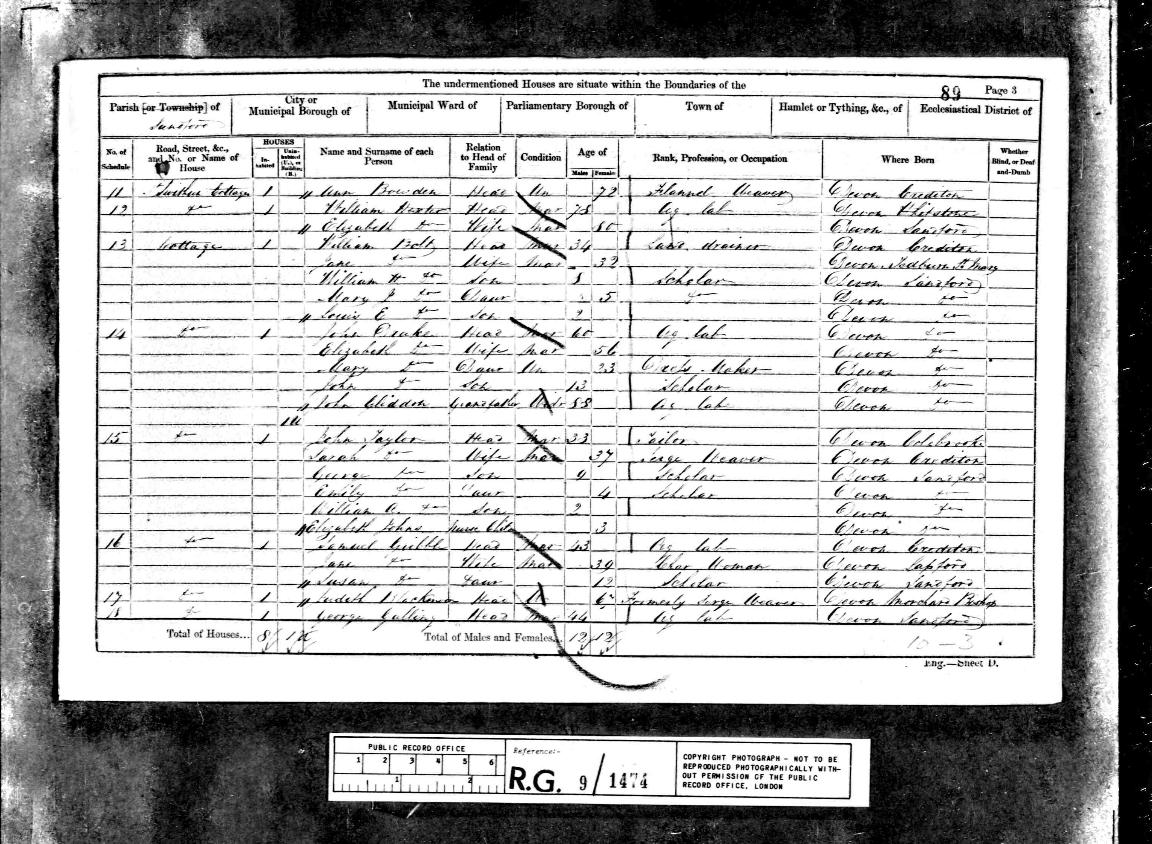 The undermentioned Houses are situate within the Boundaries of the
89 Page 3
Parish [or Township] of
Sandford
City or Municipal Borough of
Municipal Ward of
Parliamentary Borough of
Town of
Hamlet or Tything, &c., of
Ecclesiastical District of
No. of Schedule
Road, Street, &c., and No. or Name of House
HOUSES
In-habited
Unin-habited (U.), or Building (B.)
Name and Surname of each Person
Relation to Head of Family
Condition
Age of
Males
Females
Rank, Profession, or Occupation
Where Born
Whether Blind, or Deaf-and-Dumb
11 Cottage 1 Ann Bowden Head Un 72 Flannel Weaver Devon Crediton
12 do 1 William Head Mar 78 Ag lab Devon Whitstone
Elizabeth do Wife Mar 80 Devon Sandford
13 Cottage 1 William Head Mar 34 Land drainer Devon Crediton
Jane do Wife Mar 32 Devon Tedburn St Mary
William H do Son 8 Scholar Devon Sandford
Mary J do Daur 5 do Devon do
Louis E do Son 2 Devon do
14 do 1 John Drake Head Mar 60 Ag lab Devon do
Elizabeth do Wife Mar 56 Devon do
Mary do Daur Un 23 Dress Maker Devon do
John do Son 13 Scholar Devon do
John Gliddon Grandfather Widr 88 Ag lab Devon do
1U
15 do 1 John Taylor Head Mar 33 Tailor Devon Colebrooke
Sarah do Wife Mar 37 Serge Weaver Devon Crediton
George do Son 9 Scholar Devon Sandford
Emily do Daur 4 Scholar Devon do
William A do Son 2 Devon do
Elizabeth Johns Nurse Child 3 Devon do
16 do 1 Samuel Gribble Head Mar 43 Ag lab Devon Crediton
Jane do Wife Mar 39 Char Woman Devon Lapford
Susan do Daur 12 Scholar Devon Sandford
17 do 1 Judith Head Un Formerly Serge Weaver Devon Morchard Bishop
18 do 1 George Head Mar 44 Ag lab Devon Sandford
Total of Houses... 8 1U Total of Males and Females... 12 12
Eng.—Sheet D.
PUBLIC RECORD OFFICE
1 2 3 4 5 6
1 2
Reference:-
R.G. 9/1474
COPYRIGHT PHOTOGRAPH - NOT TO BE
REPRODUCED PHOTOGRAPHICALLY WITH-
OUT PERMISSION OF THE PUBLIC
RECORD OFFICE, LONDON